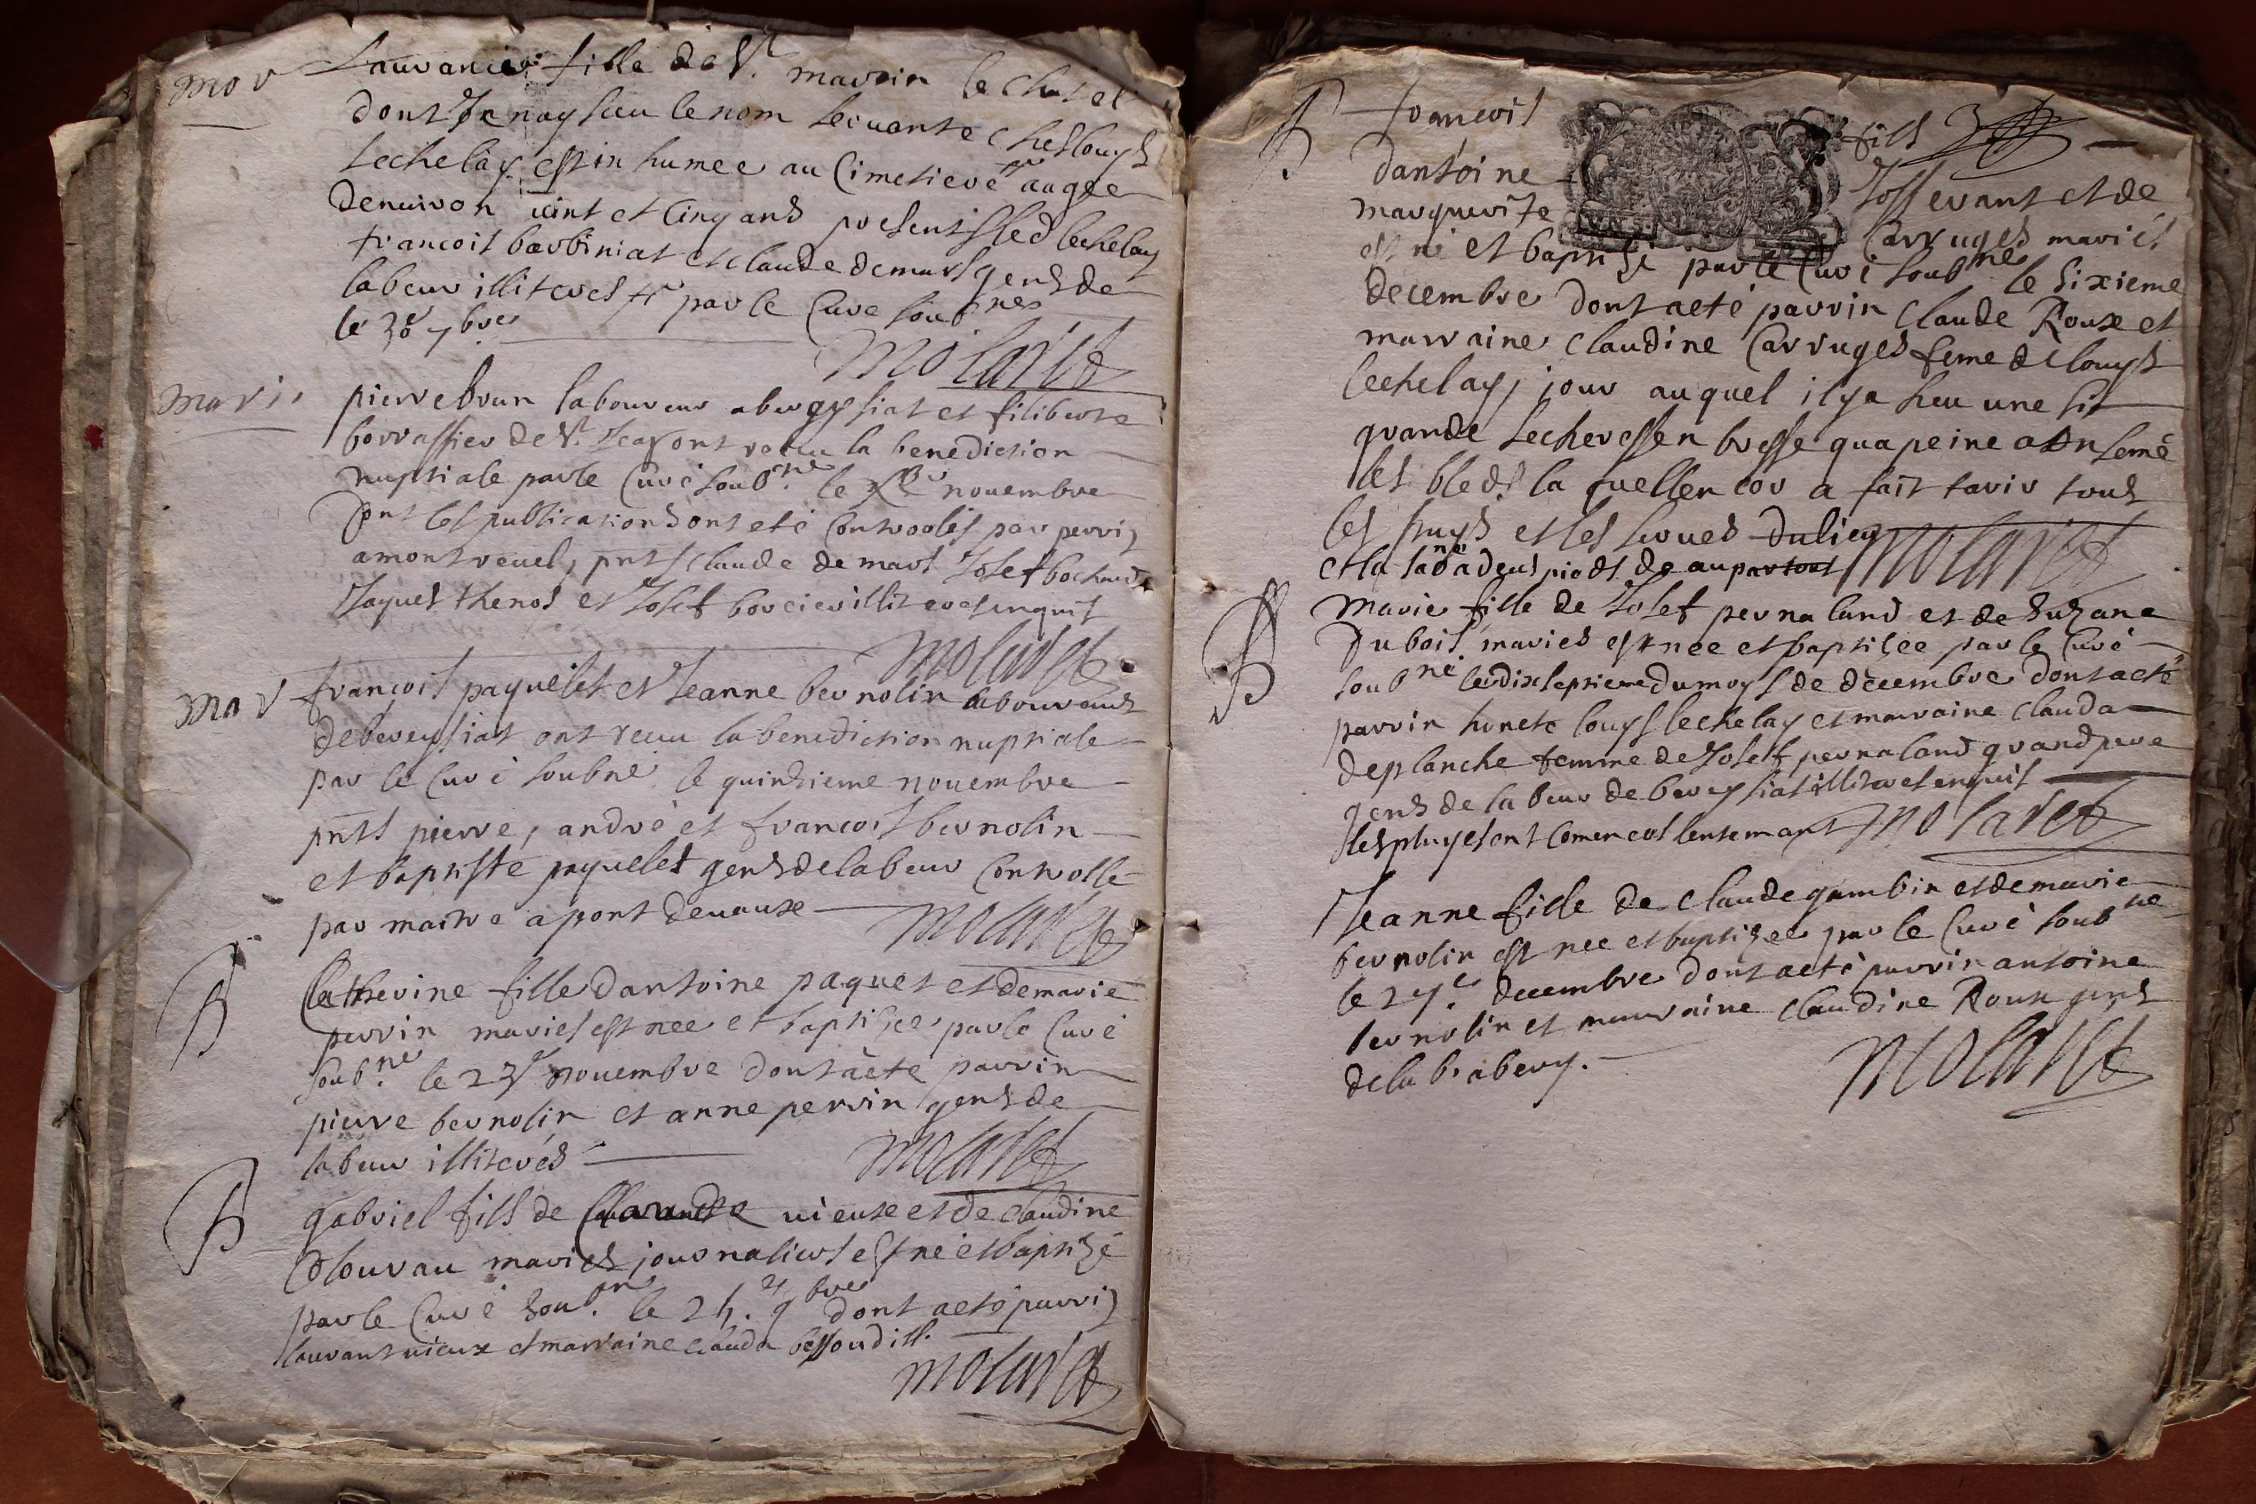 mor
Lauvance fille de St. martin le chatel
dont Je nay sceu le nom servante ches louys
Lechelay est in humee au Cimetiere augee
denuiron vint et Cinq ans presents led lechelay
francois barbiniat et claude demars gens de
labeur illiteres par le Cure soub.ne
le 30e 7bre
molaret
mari
pierre brun laboureur a bereysiat et filiberte
borrassier de St. Jea ont receu la benediction
nuptiale par le Curé soub.ne le novembre
Dont les publications ont eté Controolés par perrin
a montrevel, pnts Claude de mars Josef bochard
Jaques thenod et Josef borcier illiteres enquis
molaret
mar
francois paquelet et Jeanne bernolin laboureurs
de bereysiat ont receu la benediction nuptiale
par le Curé soubné le quinzieme novembre
pnts pierre, andré et francois bernolin
et baptiste paquelet gens de labeur Controllé
par maitre a pont devaux
molaret
B
Catherine fille dantoine paquet et de marie
perrin mariés est nee et baptisee par le Curé
soub.ne le 23e novembre dont a ete parrin
pierre bernolin et anne perrin gens de
labeur illiterés
molaret
B
gabriel fils de vieux et de claudine
Clouvau mariés journaliers est né et baptizé
par le Curé soub.ne le 24. 9bre dont a eté parrin
laurant vieux et marraine clauda bessond ill.
molaret
B
francois fils
dantoine Josserant et de
marguerite Carruges mariés
est né et baptisé par le Curé soubné le sixieme
decembre dont a eté parrin Claude Roux et
marraine Claudine Carruges feme de louys
lechelay, jour auquel il y a heu une si
grande secheresse en bresse qua peine a on semé
les bleds la quelle encor a fait tarir tous
les puys et les serves du lieu
et la saona deus pieds de au partout
molaret
B
Marie fille de Josef pernaland et de Suzane
Dubois mariés est nee et baptisée par le Curé
soubné le dixseptieme du moys de décembre dont a eté
parrin honete louys lechelay et marraine clauda
deplanche femme de Josef pernaland grand pere
gens de labeur de bereysiat illiteres enquis
les pluyes ont comencés lentemant
molaret
Jeanne fille de claude gambin et de marie
bernolin est nee et baptizee par le Curé soubné
le 27e. decembre dont a eté parrin antoine
bernolin et marraine Claudine Roux gens
de lab. a berey.
molaret